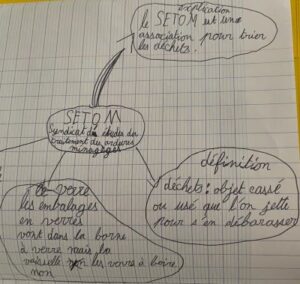 explication
le SETOM est une
association pour trier
les déchets.
SETOM
Syndicat des
traitement des ordures
ménagèges
définition
déchets : objet cassé
ou usé que l'on jette
pour s'en débarasser
le verre
les embalages
en verres
vont dans la borne
à verre mais la
vaiselle les verre à boire
non